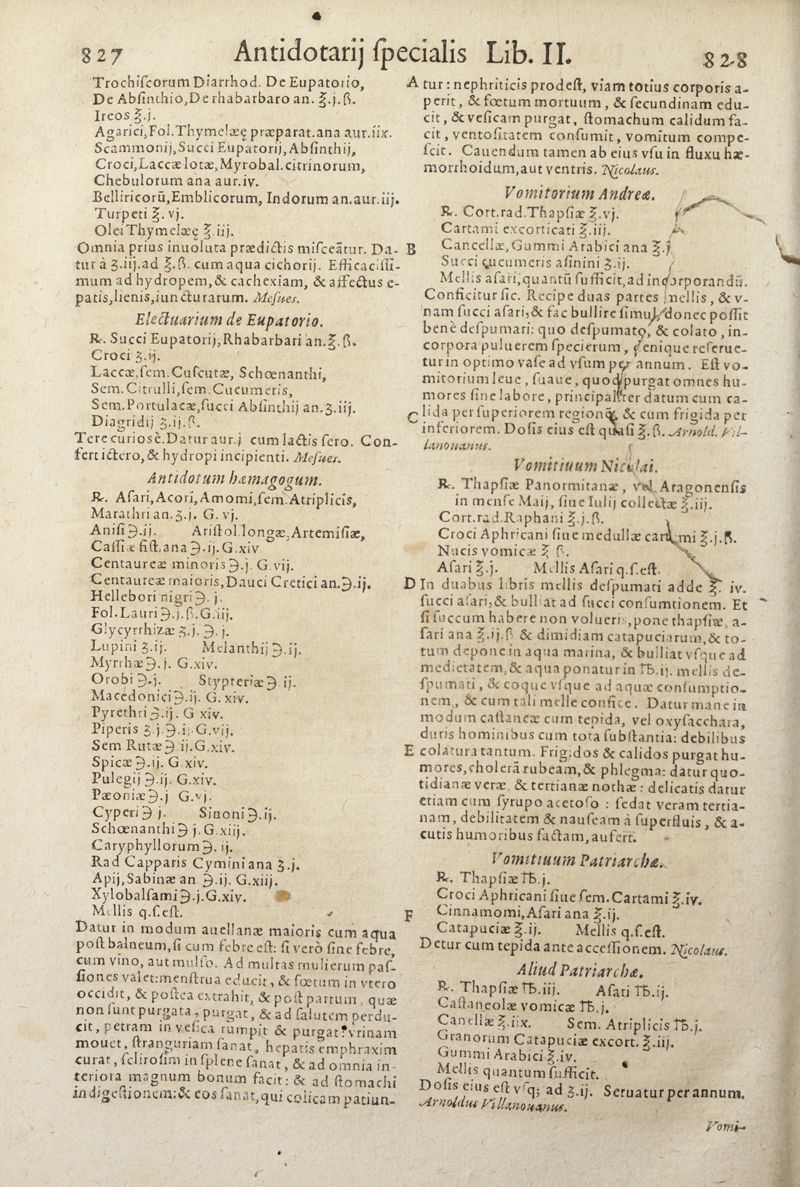 827 Antidotarij ſpecialis Lib. II. 828
Trochiſcorum Diarrhod. De Eupatorio,
De Abſinthio, De rhabarbaro an. ℥.j.ß.
Ireos ℥.j.
Agarici, Fol. Thymelææ præparat. ana aur.iix.
Scammonij, Succi Eupatorij, Abſinthij,
Croci, Laccæ lotæ, Myrobal. citrinorum,
Chebulorum ana aur.iv.
Belliricorũ, Emblicorum, Indorum an. aur. iij.
Turpeti ℥. vj.
Olei Thymelææ ℥ iij.
Omnia prius inuoluta prædictis miſceãtur. Da-
tur à ʒ.iij. ad ℥.ß. cum aqua cichorij. Efficaciſſi-
mum ad hydropem, & cachexiam, & affectus e-
patis, lienis, iuncturarum. Meſues.
Electuarium de Eupatorio.
℞. Succi Eupatorij, Rhabarbari an. ℥.ß.
Croci ʒ.ij.
Laccæ, ſem. Cuſcutæ, Schœnanthi,
Sem. Citrulli, ſem. Cucumeris,
Sem. Portulacæ, ſucci Abſinthij an. ʒ.iij.
Diagridij ʒ.ij.ß.
Tere curiosè. Datur aur.j cum lactis ſero. Con-
fert ictero, & hydropi incipienti. Meſues.
Antidotum hæmagogum.
℞. Afari, Acori, Amomi, ſem. Atriplicis,
Marathri an. ʒ.j. G. vj.
Aniſi ℈.ij. Ariſtol. longæ, Artemiſiæ,
Caſſiæ fiſt. ana ℈.ij. G. xiv
Centaureæ minoris ℈.j. G vij.
Centaureæ maioris, Dauci Cretici an. ℈.ij.
Hellebori nigri ℈. j.
Fol. Lauri ℈.j.ß. G. iij.
Glycyrrhizæ ʒ.j. ℈. j.
Lupini ʒ.ij. Melanthij ℈.ij.
Myrrhæ ℈.j. G. xiv.
Orobi ℈.j. Stypteriæ ℈ ij.
Macedonici ℈.ij. G. xiv.
Pyrethri ℈.ij. G xiv.
Piperis ʒ.j. ℈.ij. G. vij.
Sem Rutæ ℈ ij. G. xiv.
Spicæ ℈.ij. G. xiv.
Pulegij ℈.ij. G. xiv.
Pæoniæ ℈.j G. vj.
Cyperi ℈ j. Sinoni ℈.ij.
Schœnanthi ℈ j. G. xiij.
Caryphyllorum ℈. ij.
Rad Capparis Cymini ana ʒ.j.
Apij, Sabinæ an ℈.ij. G. xiij.
Xylobalſami ℈.j. G. xiv.
Mellis q.ſ.eſt.
Datur in modum auellanæ maioris cum aqua
poſt balneum, ſi cum febre eſt: ſi verò ſine febre,
cum vino, aut mulſo. Ad multas mulierum paſ-
ſiones valet: menſtrua educit, & fœtum in vtero
occidit, & poſtea extrahit, & poſt partum, quæ
non ſunt purgata, purgat, & ad ſalutem perdu-
cit, petram in veſica rumpit & purgat: vrinam
mouet, ſtranguriam ſanat, hepatis emphraxim
curat, ſcliroſim in ſplene ſanat, & ad omnia in-
teriora magnum bonum facit: & ad ſtomachi
indigeſtionem: & eos ſanat, qui colicam patiun-
A tur: nephriticis prodeſt, viam totius corporis a-
perit, & fœtum mortuum, & ſecundinam edu-
cit, & veſicam purgat, ſtomachum calidum fa-
cit, ventoſitatem conſumit, vomitum compe-
ſcit. Cauendum tamen ab eius vſu in fluxu hæ-
morrhoidum, aut ventris. Nicolaus.
Vomitorium Andreæ.
℞. Cort. rad. Thapſiæ ℥.vj.
Cartami excorticati ℥.iij.
B Cancellæ, Gummi Arabici ana ℥.j
Succi cucumeris aſinini ʒ.ij.
Mellis aſari, quantũ ſufficit, ad incorporandũ.
Conficitur ſic. Recipe duas partes mellis, & v-
nam ſucci aſari, & fac bullire ſimul, donec poſſit
benè deſpumari: quo deſpumato, & colato, in-
corpora puluerem ſpecierum, denique reſerue-
tur in optimo vaſe ad vſum per annum. Eſt vo-
mitorium leue, ſuaue, quod purgat omnes hu-
mores ſine labore, principaliter datum cum ca-
C lida per ſuperiorem regionẽ, & cum frigida per
inferiorem. Doſis eius eſt quaſi ℥.ß. Arnold. Vil-
lanouanus.
Vomitiuum Nicolai.
℞. Thapſiæ Panormitanæ, vel Aragonenſis
in menſe Maij, ſiue Iulij collectæ ℥.iij.
Cort. rad. Raphani ℥.j.ß.
Croci Aphricani ſiue medullæ cartami ℥.j.ß.
Nucis vomicæ ℥ ß.
Aſari ℥.j. Mellis Aſari q.ſ.eſt.
D In duabus libris mellis deſpumati adde ℥. iv.
ſucci aſari, & bulliat ad ſucci conſumtionem. Et
ſi ſuccum habere non volueris, pone thapſiæ, a-
ſari ana ℥.ij.ß & dimidiam catapuciarum, & to-
tum depone in aqua marina, & bulliat vſque ad
medietatem, & aqua ponatur in ℔.ij. mellis de-
ſpumati, & coque vſque ad aquæ conſumptio-
nem, & cum tali melle confice. Datur mane in
modum caſtaneæ cum tepida, vel oxyſacchara,
duris hominibus cum tota ſubſtantia: debilibus
E colatura tantum. Frigidos & calidos purgat hu-
mores, cholerã rubeam, & phlegma: datur quo-
tidianæ veræ, & tertianæ nothæ: delicatis datur
etiam cum ſyrupo acetoſo: ſedat veram tertia-
nam, debilitatem & nauſeam à ſuperfluis, & a-
cutis humoribus factam, aufert.
Vomitiuum Patriarchæ.
℞. Thapſiæ ℔.j.
Croci Aphricani ſiue ſem. Cartami ℥.iv.
F Cinnamomi, Aſari ana ℥.ij.
Catapuciæ ℥.ij. Mellis q.ſ.eſt.
Detur cum tepida ante acceſſionem. Nicolaus.
Aliud Patriarchæ.
℞. Thapſiæ ℔.iij. Aſati ℔.ij.
Caſtaneolæ vomicæ ℔.j.
Canellæ ℥.iix. Sem. Atriplicis ℔.j.
Granorum Catapuciæ excort. ℥.iij.
Gummi Arabici ℥.iv.
Mellis quantum ſufficit.
Doſis eius eſt vſq; ad ʒ.ij. Seruatur per annum.
Arnoldus Villanouanus.
Vomi-